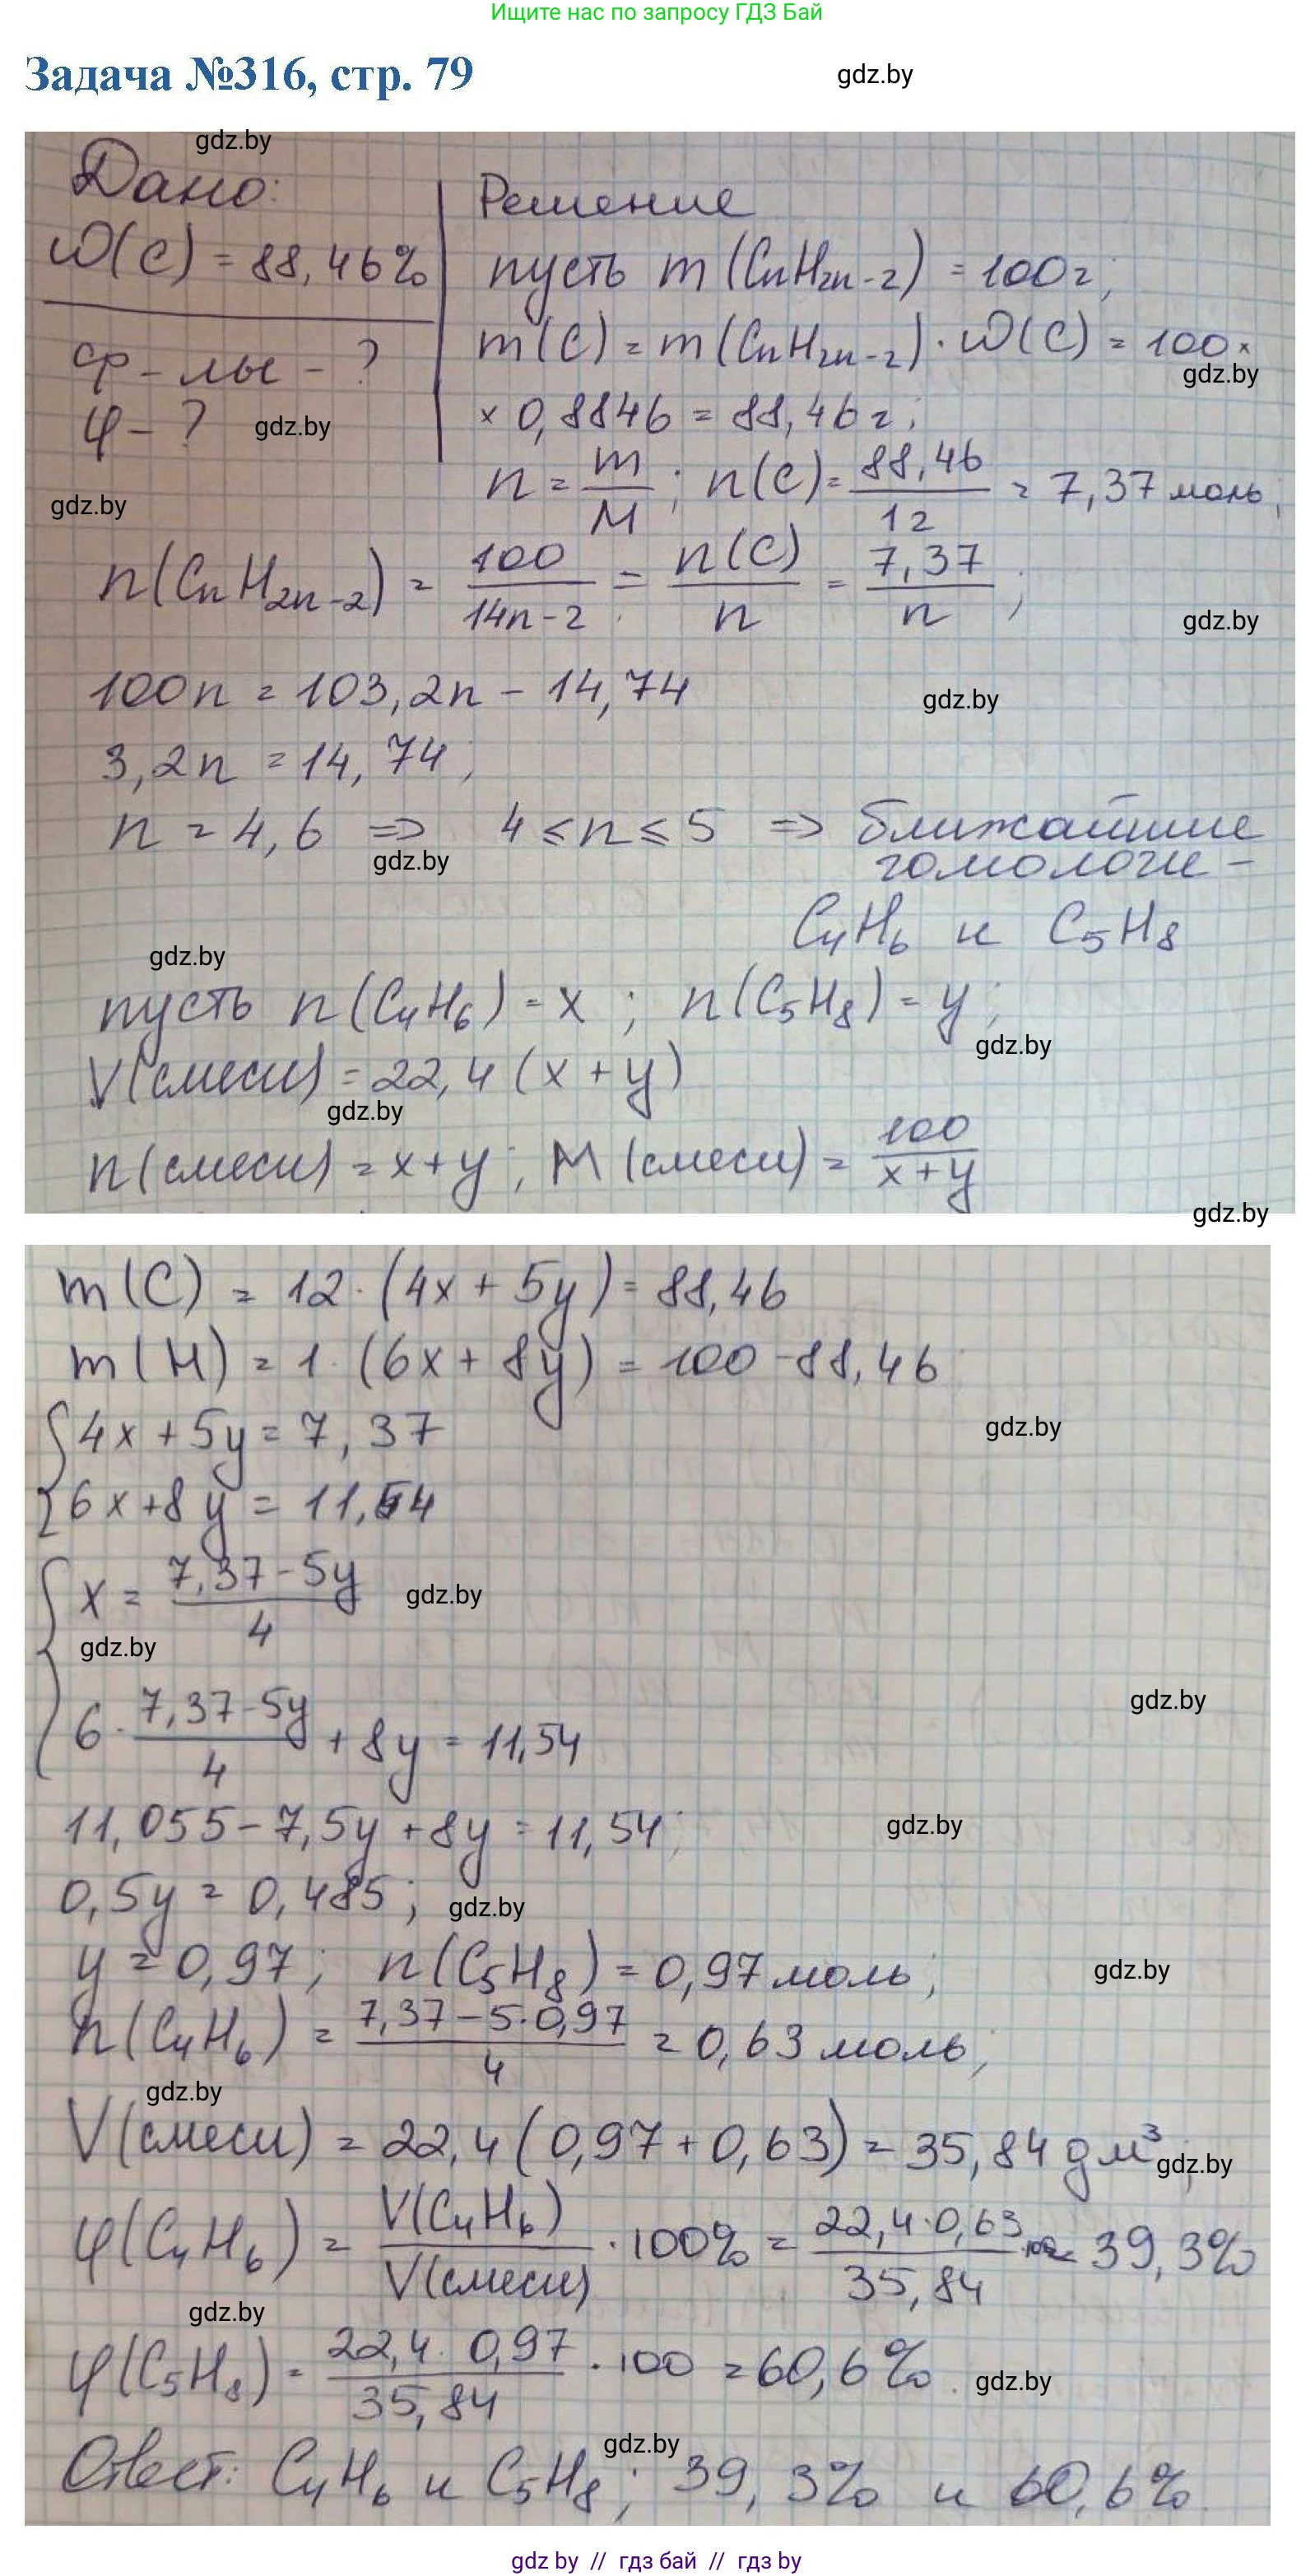 Ищите нас по запросу ГДЗ Бай
Задача №316, стр. 79
gdz.by
gdz.by
Дано:
Решение
ω(C) = 88,46%
пусть m (CnH2n-2) = 100г;
ф-лы - ?
m(C) = m(CnH2n-2)·ω(C) = 100×
gdz.by
φ - ?
gdz.by
× 0,8846 = 88,46 г;
gdz.by
n = m/M ; n(C) = 88,46/12 = 7,37 моль;
n(CnH2n-2) = 100/(14n-2) = n(C)/n = 7,37/n ;
gdz.by
100n = 103,2n - 14,74
gdz.by
3,2n = 14,74;
n = 4,6 => 4 ≤ n ≤ 5 => ближайшие
gdz.by
гомологи -
C4H6 и C5H8
gdz.by
пусть n(C4H6) = x ; n(C5H8) = y;
gdz.by
V(смеси) = 22,4 (x + y)
gdz.by
n(смеси) = x+y ; M (смеси) = 100/(x+y)
gdz.by
m(C) = 12·(4x + 5y) = 88,46
m(H) = 1·(6x + 8y) = 100 - 88,46
{4x + 5y = 7,37
gdz.by
6x + 8y = 11,54
{x = (7,37-5y)/4
gdz.by
gdz.by
6·(7,37-5y)/4 + 8y = 11,54
gdz.by
11,055 - 7,5y + 8y = 11,54;
gdz.by
0,5y = 0,485;
gdz.by
y = 0,97; n(C5H8) = 0,97 моль;
gdz.by
n(C4H6) = (7,37-5·0,97)/4 = 0,63 моль;
gdz.by
V(смеси) = 22,4(0,97+0,63) = 35,84 дм³;
gdz.by
φ(C4H6) = V(C4H6)/V(смеси) ·100% = 22,4·0,63/35,84 ·100 = 39,3%
gdz.by
φ(C5H8) = 22,4·0,97/35,84 ·100 = 60,6%.
gdz.by
gdz.by
Ответ: C4H6 и C5H8; 39,3% и 60,6%.
gdz by // гдз бай // гдз by